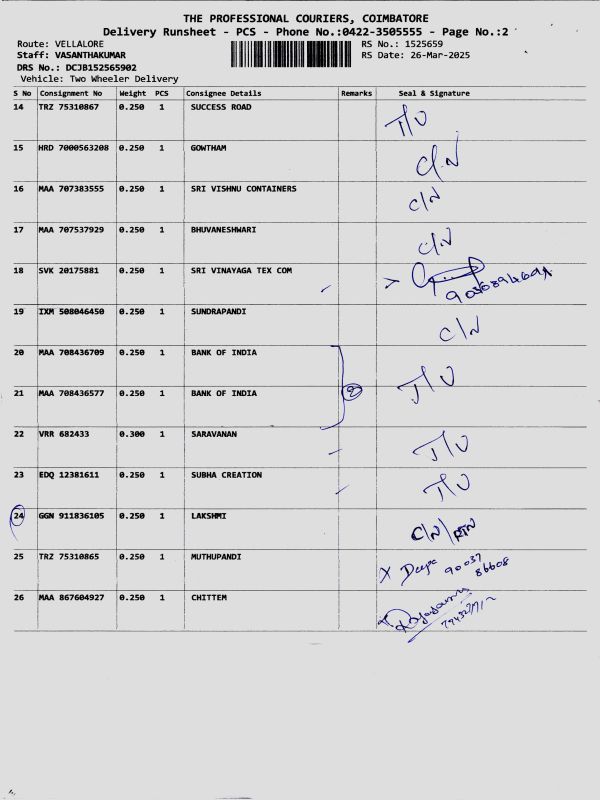 THE PROFESSIONAL COURIERS, COIMBATORE
Delivery Runsheet - PCS - Phone No.:0422-3505555 - Page No.:2
Route: VELLALORE RS No.: 1525659
Staff: VASANTHAKUMAR RS Date: 26-Mar-2025
DRS No.: DCJB152565902
Vehicle: Two Wheeler Delivery
S No Consignment No Weight PCS Consignee Details Remarks Seal & Signature
14 TRZ 75310867 0.250 1 SUCCESS ROAD
15 HRD 7000563208 0.250 1 GOWTHAM C/N
16 MAA 707383555 0.250 1 SRI VISHNU CONTAINERS C/N
17 MAA 707537929 0.250 1 BHUVANESHWARI C/N
18 SVK 20175881 0.250 1 SRI VINAYAGA TEX COM
19 IXM 508046450 0.250 1 SUNDRAPANDI C/N
20 MAA 708436709 0.250 1 BANK OF INDIA
21 MAA 708436577 0.250 1 BANK OF INDIA 2
22 VRR 682433 0.300 1 SARAVANAN
23 EDQ 12381611 0.250 1 SUBHA CREATION
24 GGN 911836105 0.250 1 LAKSHMI C/N/RTN
25 TRZ 75310865 0.250 1 MUTHUPANDI X Deepa 90037
86608
26 MAA 867604927 0.250 1 CHITTEM